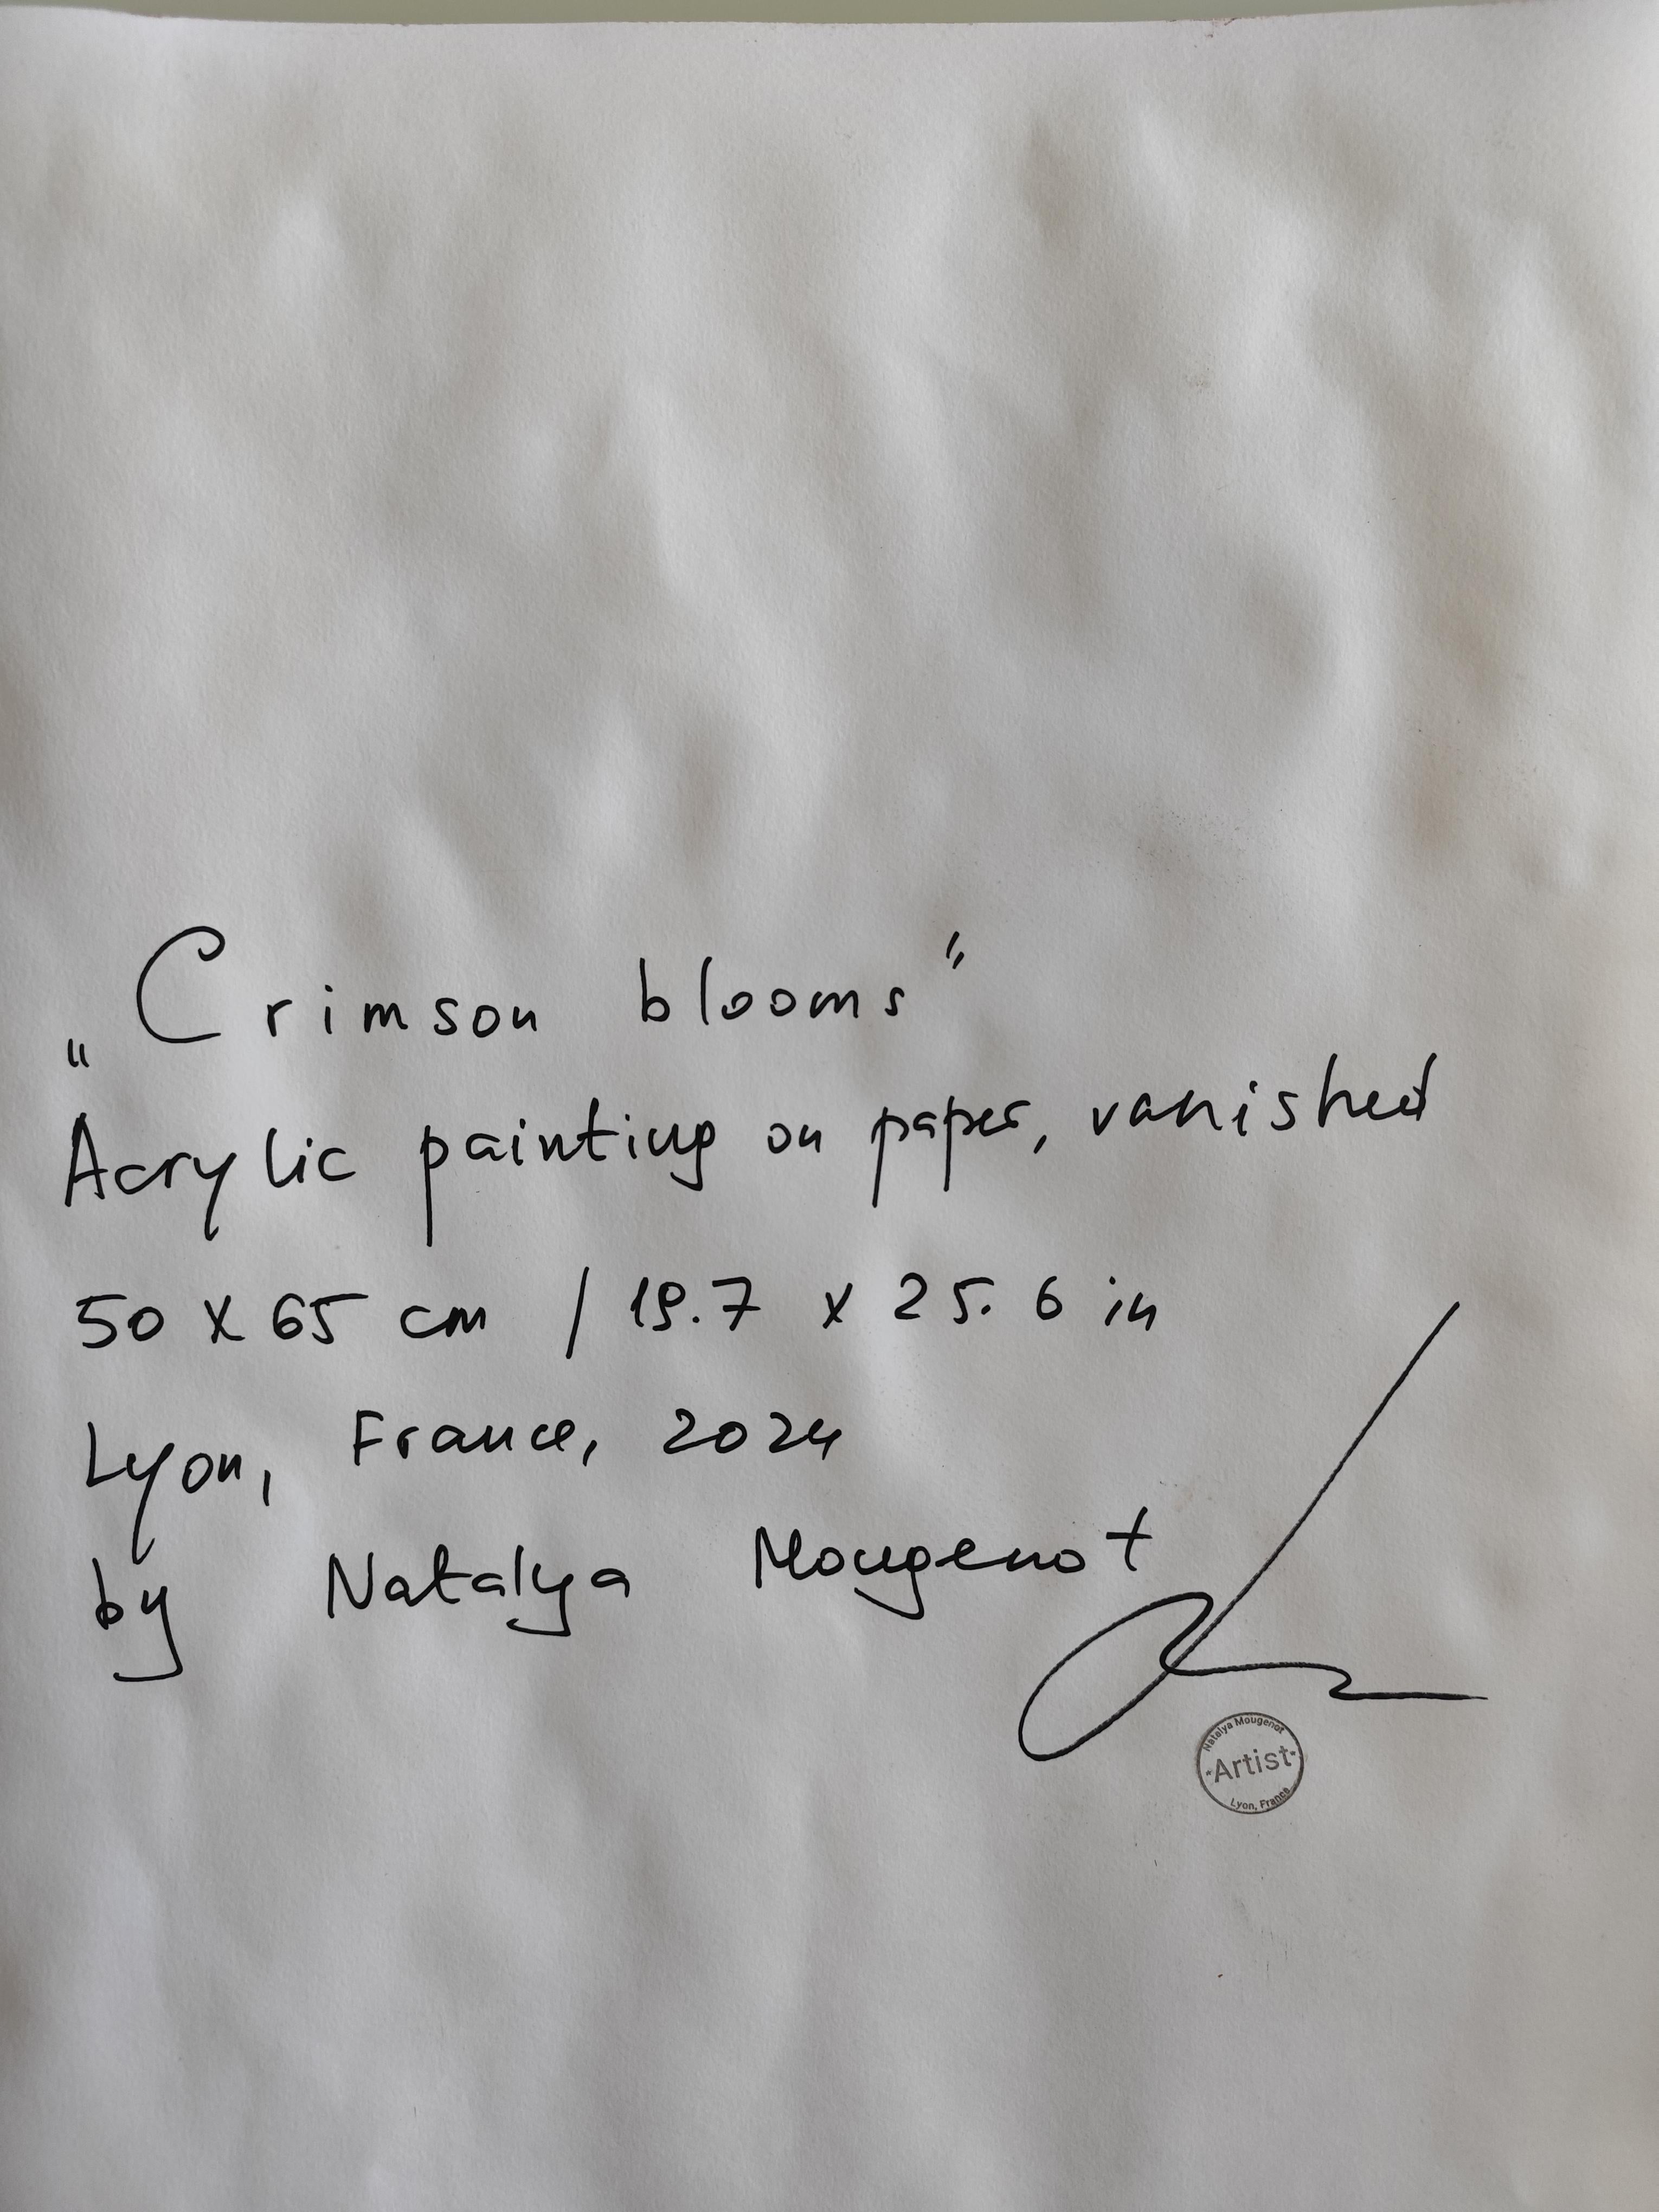 „Crimson blooms"
Acrylic painting on paper, vanished
50 x 65 cm / 19.7 x 25.6 in
Lyon, France, 2024
by Natalya Mougenot
Natalya Mougenot
Artist
Lyon, France